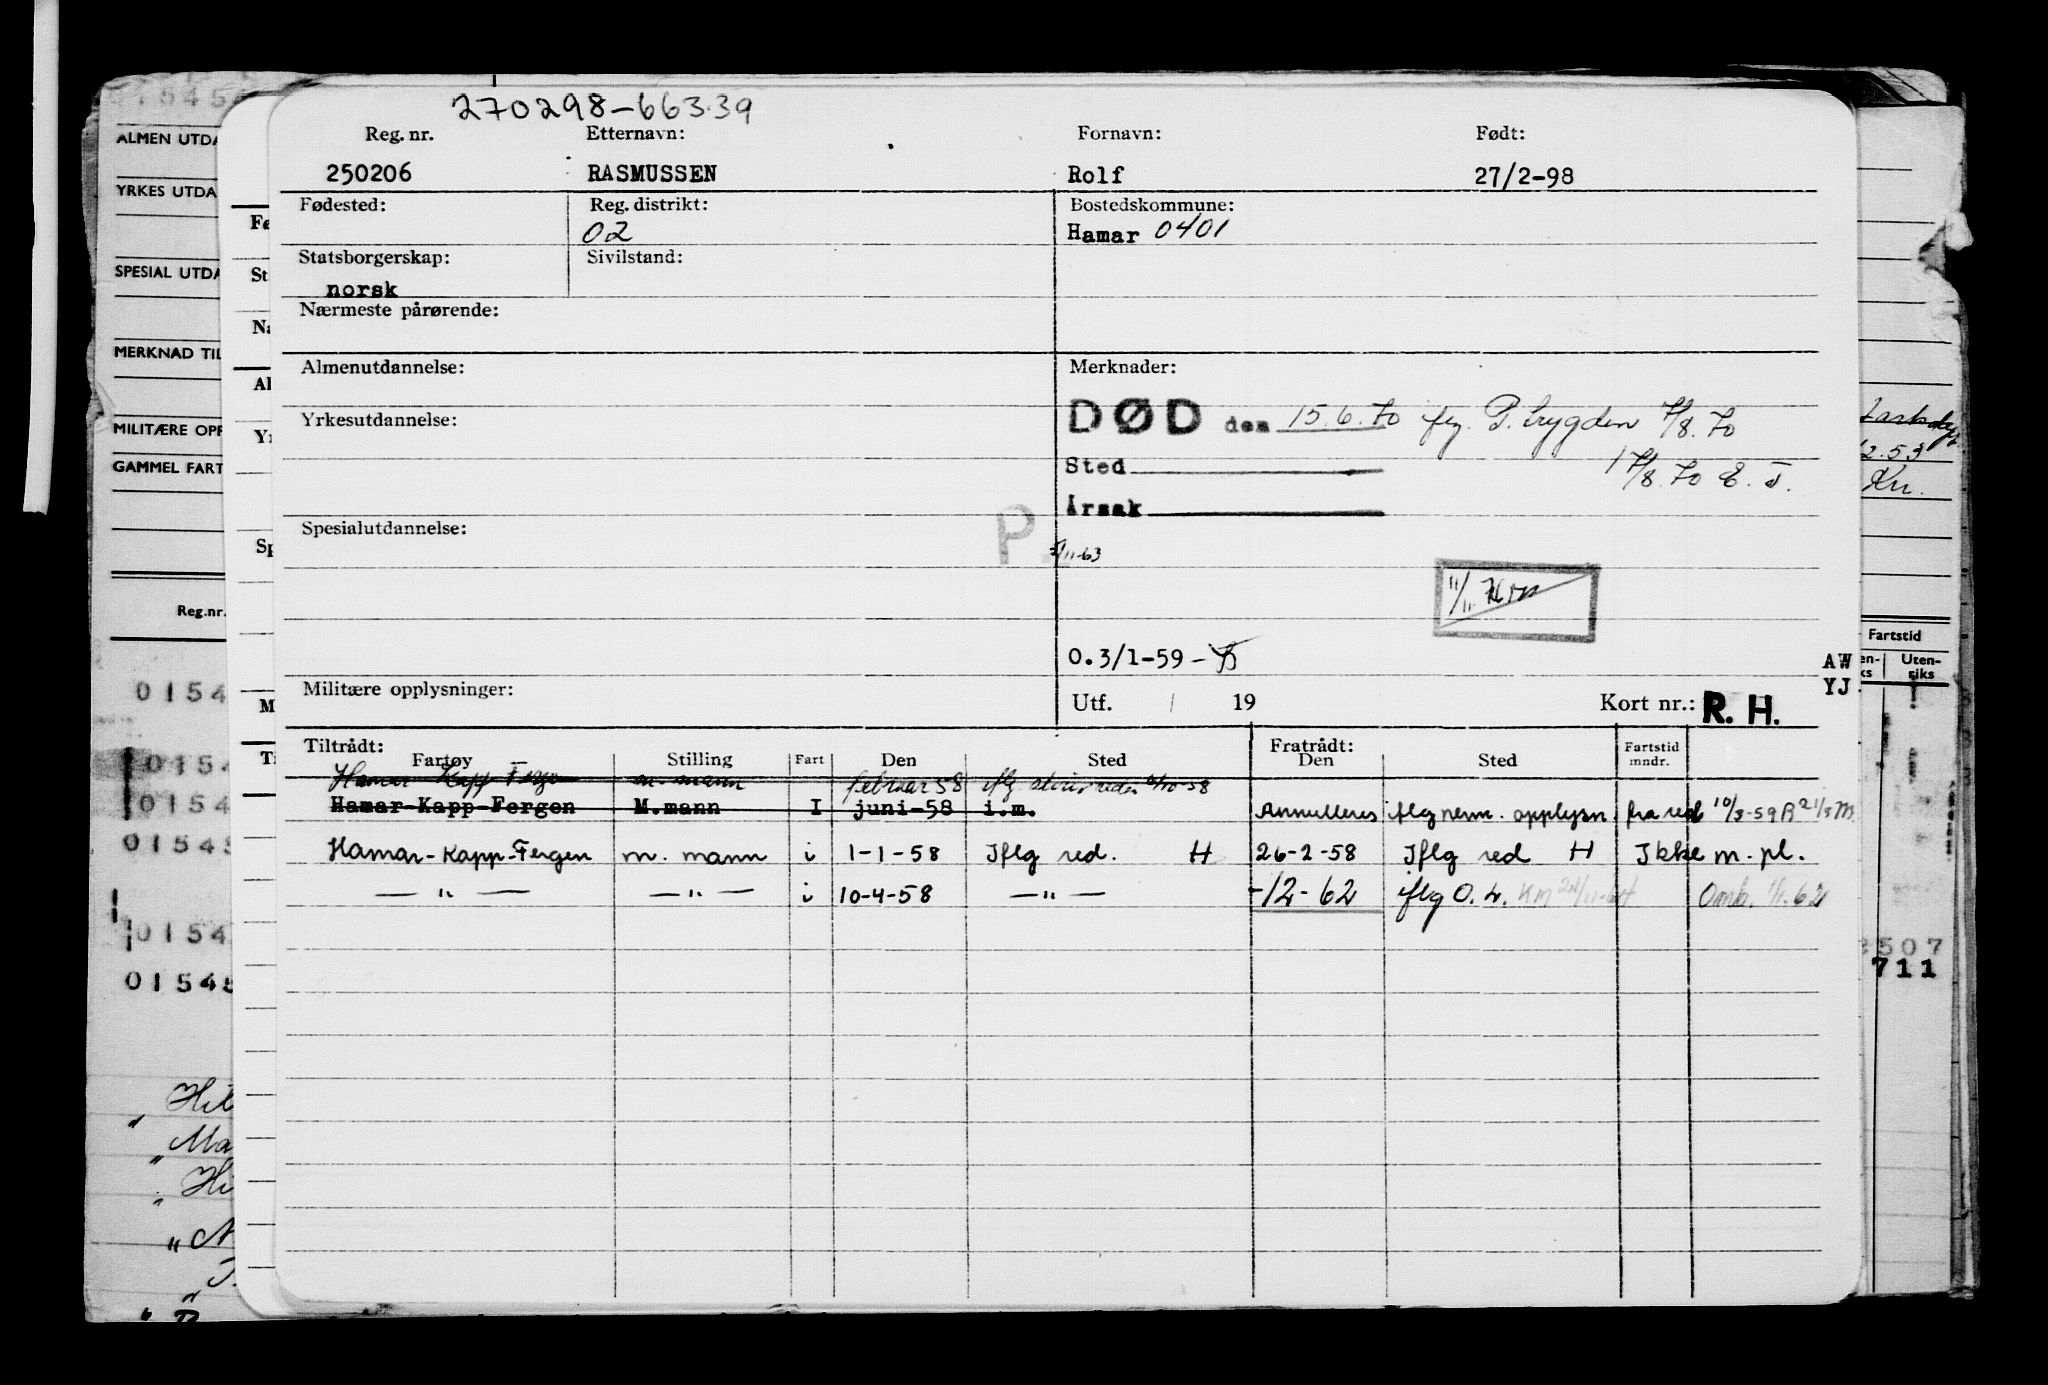 270298-663.39
Reg. nr. Etternavn: Fornavn: Født:
250206 RASMUSSEN Rolf 27/2-98
Fødested: Reg. distrikt: Bostedskommune:
02 Hamar 0401
Statsborgerskap: Sivilstand:
norsk
Nærmeste pårørende:
Almenutdannelse: Merknader:
DØD den 15.6.70 P.trygden 7/8.70
Yrkesutdannelse:
Sted 17/8.70 E. T.
Årsak
Spesialutdannelse: P.
/11-63
11/11
0.3/1-59 -
AW
YJ
Militære opplysninger: Utf. / 19 Kort nr.: R. H.
Tiltrådt: Fratrådt:
Fartøy Stilling Fart Den Sted Den Sted Fartstid mndr.
Hamar Kapp Fergen m. mann februar 58 iflg
Hamar-Kapp-Fergen M.mann I juni-58 i.m. Annulleres iflg opplysn. fra red 10/3-59
Hamar-Kapp-Fergen m. mann i 1-1-58 Iflg red. H 26-2-58 Iflg red H Ikke m. pl.
— " — — " — i 10-4-58 — " — -12-62 iflg O. L. KM Omb. 1/1.62
ALMEN UTDA
YRKES UTDA
SPESIAL UTDA
MERKNAD TIL
MILITÆRE OPP
GAMMEL FART
Reg.nr.
Fartstid
Uten-
riks
2.53
Kn.
507
711